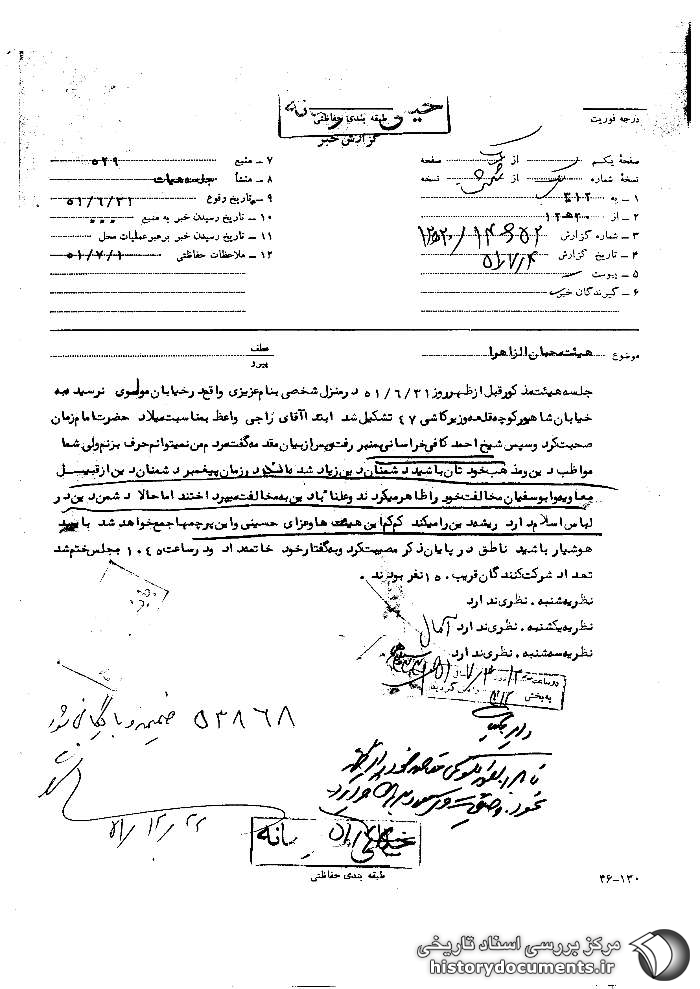 درجه فوریت
خیلی محرمانه
طبقه بندی حفاظتی
گزارش خبر
صفحه یکم از یک صفحه
نسخه شماره یک از نسخه
۱ ـ به ۳۱۲
۲ ـ از ۱۲ه۲۰
۳ ـ شماره گزارش ۱۲ه۲۰/۱۴۶۵۲
۴ ـ تاریخ گزارش ۵۱/۷/۴
۵ ـ پیوست
۶ ـ گیرندگان خبر
۷ ـ منبع ۵۲۹
۸ ـ منشأ جلسه هیات
۹ ـ تاریخ وقوع ۵۱/۶/۳۱
۱۰ ـ تاریخ رسیدن خبر به منبع
۱۱ ـ تاریخ رسیدن خبر برهبر عملیات محل
۱۲ ـ ملاحظات حفاظتی ۵۱/۷/۱
موضوع هیئت محبان الزاهرا
عطف
پیرو
جلسه هیئت مذکور قبل از ظهر روز ۵۱/۶/۳۱ در منزل شخصی بنام عزیزی واقع در خیابان مولوی نرسیده به
خیابان شاهپور کوچه قلعه وزیر کاشی ۴۷ تشکیل شد ابتدا آقای راجی واعظ بمناسبت میلاد حضرت امام زمان
صحبت کرد و سپس شیخ احمد کافی خراسانی منبر رفت و پس از بیان مقدمه گفت مردم من نمیتوانم حرف بزنم ولی شما
مواظب دین و مذهب خودتان باشید دشمنان دین زیاد شده‌اند در زمان پیغمبر دشمنان دین از قبیل
معاویه و ابوسفیان مخالفت خود را ظاهر میکردند و علنا با دین به مخالفت میپرداختند اما حالا دشمن دین در
لباس اسلام دارد ریشه دین را میکند کم کم این هیئت ها و عزای حسینی و این پرچمها جمع خواهد شد باید
هوشیار باشید ناطق در پایان ذکر مصیبت کرد و به گفتار خود خاتمه داد و در ساعت ۱۰۴۵ مجلس ختم شد
تعداد شرکت کنندگان قریب ۱۵۰ نفر بودند .
نظریه شنبه . نظری ندارد
نظریه یکشنبه . نظری ندارد آمال
نظریه سه شنبه . نظری ندارد
به بخش ۳۱۲
۵۳۸۶۸ ضمیمه و بایگانی شود
۵۱/۱۲/۲۲
طبقه بندی حفاظتی
۳۶-۱۳۰
مرکز بررسی اسناد تاریخی
historydocuments.ir